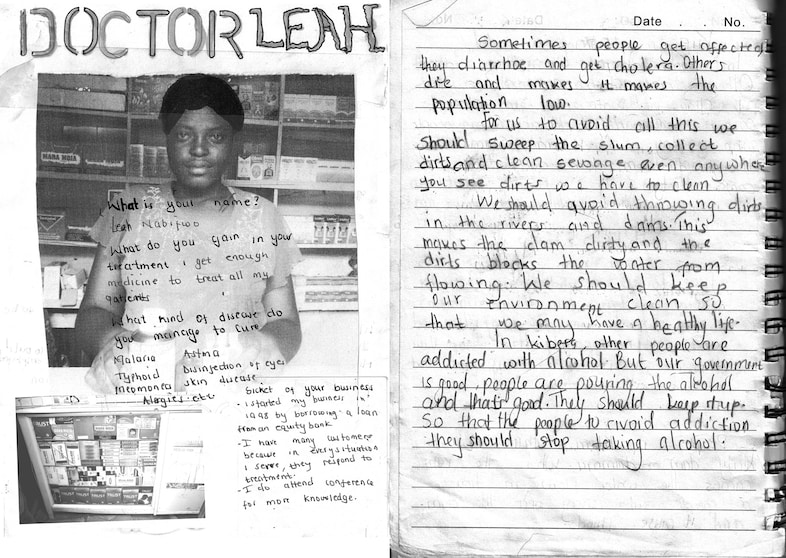 DOCTOR LEAH
MARA MOJA
What is your name?
Leah Nabifwo
What do you gain in your
treatment i get enough
medicine to treat all my
patients
What kind of disease do
you manage to cure
Malaria Astma
Typhoid Disinfection of eyes
Pneomonea skin disease
Alagies etc
Sicket of your business
- i started my business in
1998 by borrowing a loan
from equity bank
- I have many customers
because in every situation
i serve, they respond to
treatment.
- I do attend conference
for more knowledge.
TRUST
TRUST
TRUST
TRUST
Date . . No.
Sometimes people get affected
they diarrhoe and get cholera. Others
die and makes it makes the
population low.
For us to avoid all this we
should sweep the slum, collect
dirts and clean sewage even anywhere
you see dirts we have to clean
We should avoid throwing dirts
in the rivers and dams. This
makes the dam dirty and the
dirts blocks the water from
flowing. We should keep
our environment clean so
that we many have a healthy life.
In kibera other people are
addicted with alcohol. But our government
is good, people are pouring the alcohol
and thats good. They should keep it up.
So that the people to avoid addiction
they should stop taking alcohol.